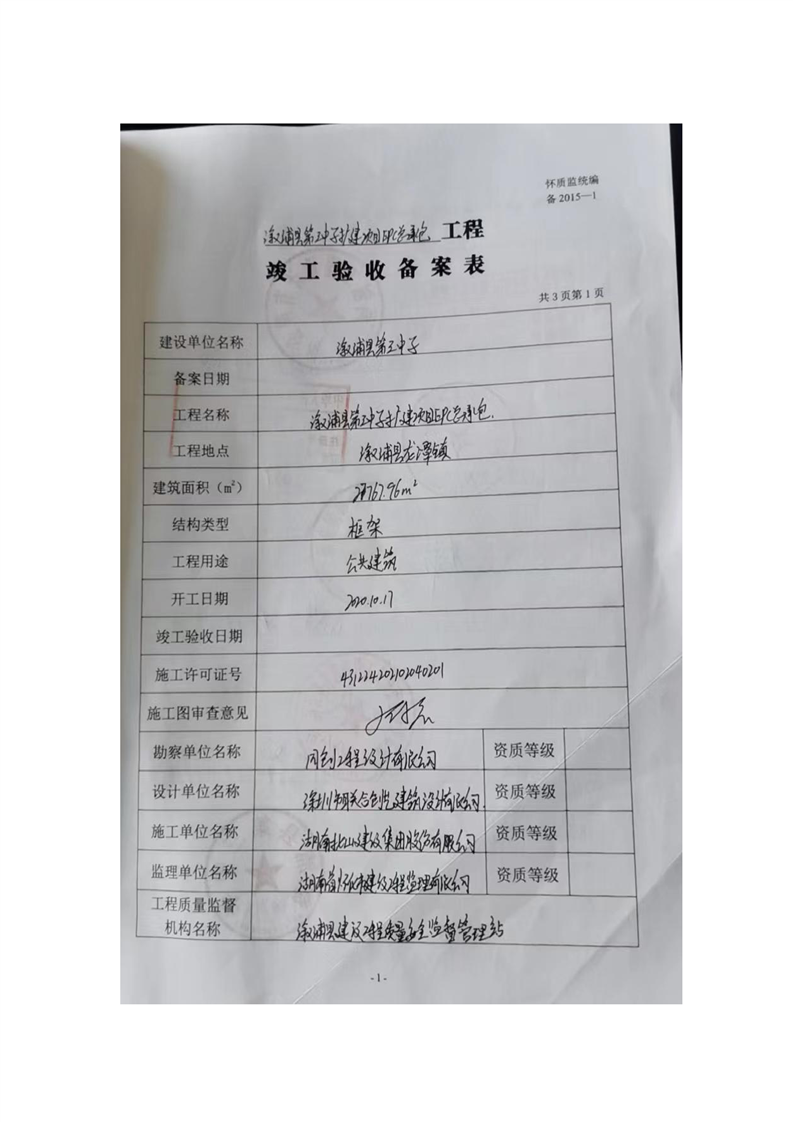 怀质监统编
备 2015—1
溆浦县第三中学扩建项目EPC总承包 工程
竣工验收备案表
共 3 页第 1 页
建设单位名称 溆浦县第三中学
备案日期
工程名称 溆浦县第三中学扩建项目EPC总承包
工程地点 溆浦县龙潭镇
建筑面积（m²） 767.96m²
结构类型 框架
工程用途 公共建筑
开工日期 2020.10.17
竣工验收日期
施工许可证号 431224202102040201
施工图审查意见
勘察单位名称 工程设计有限公司 资质等级
设计单位名称 深圳市联合创艺建筑设计有限公司 资质等级
施工单位名称 湖南北山建设集团股份有限公司 资质等级
监理单位名称 湖南省怀化市建设工程监理有限公司 资质等级
工程质量监督
机构名称 溆浦县建设工程质量安全监督管理站
- 1 -